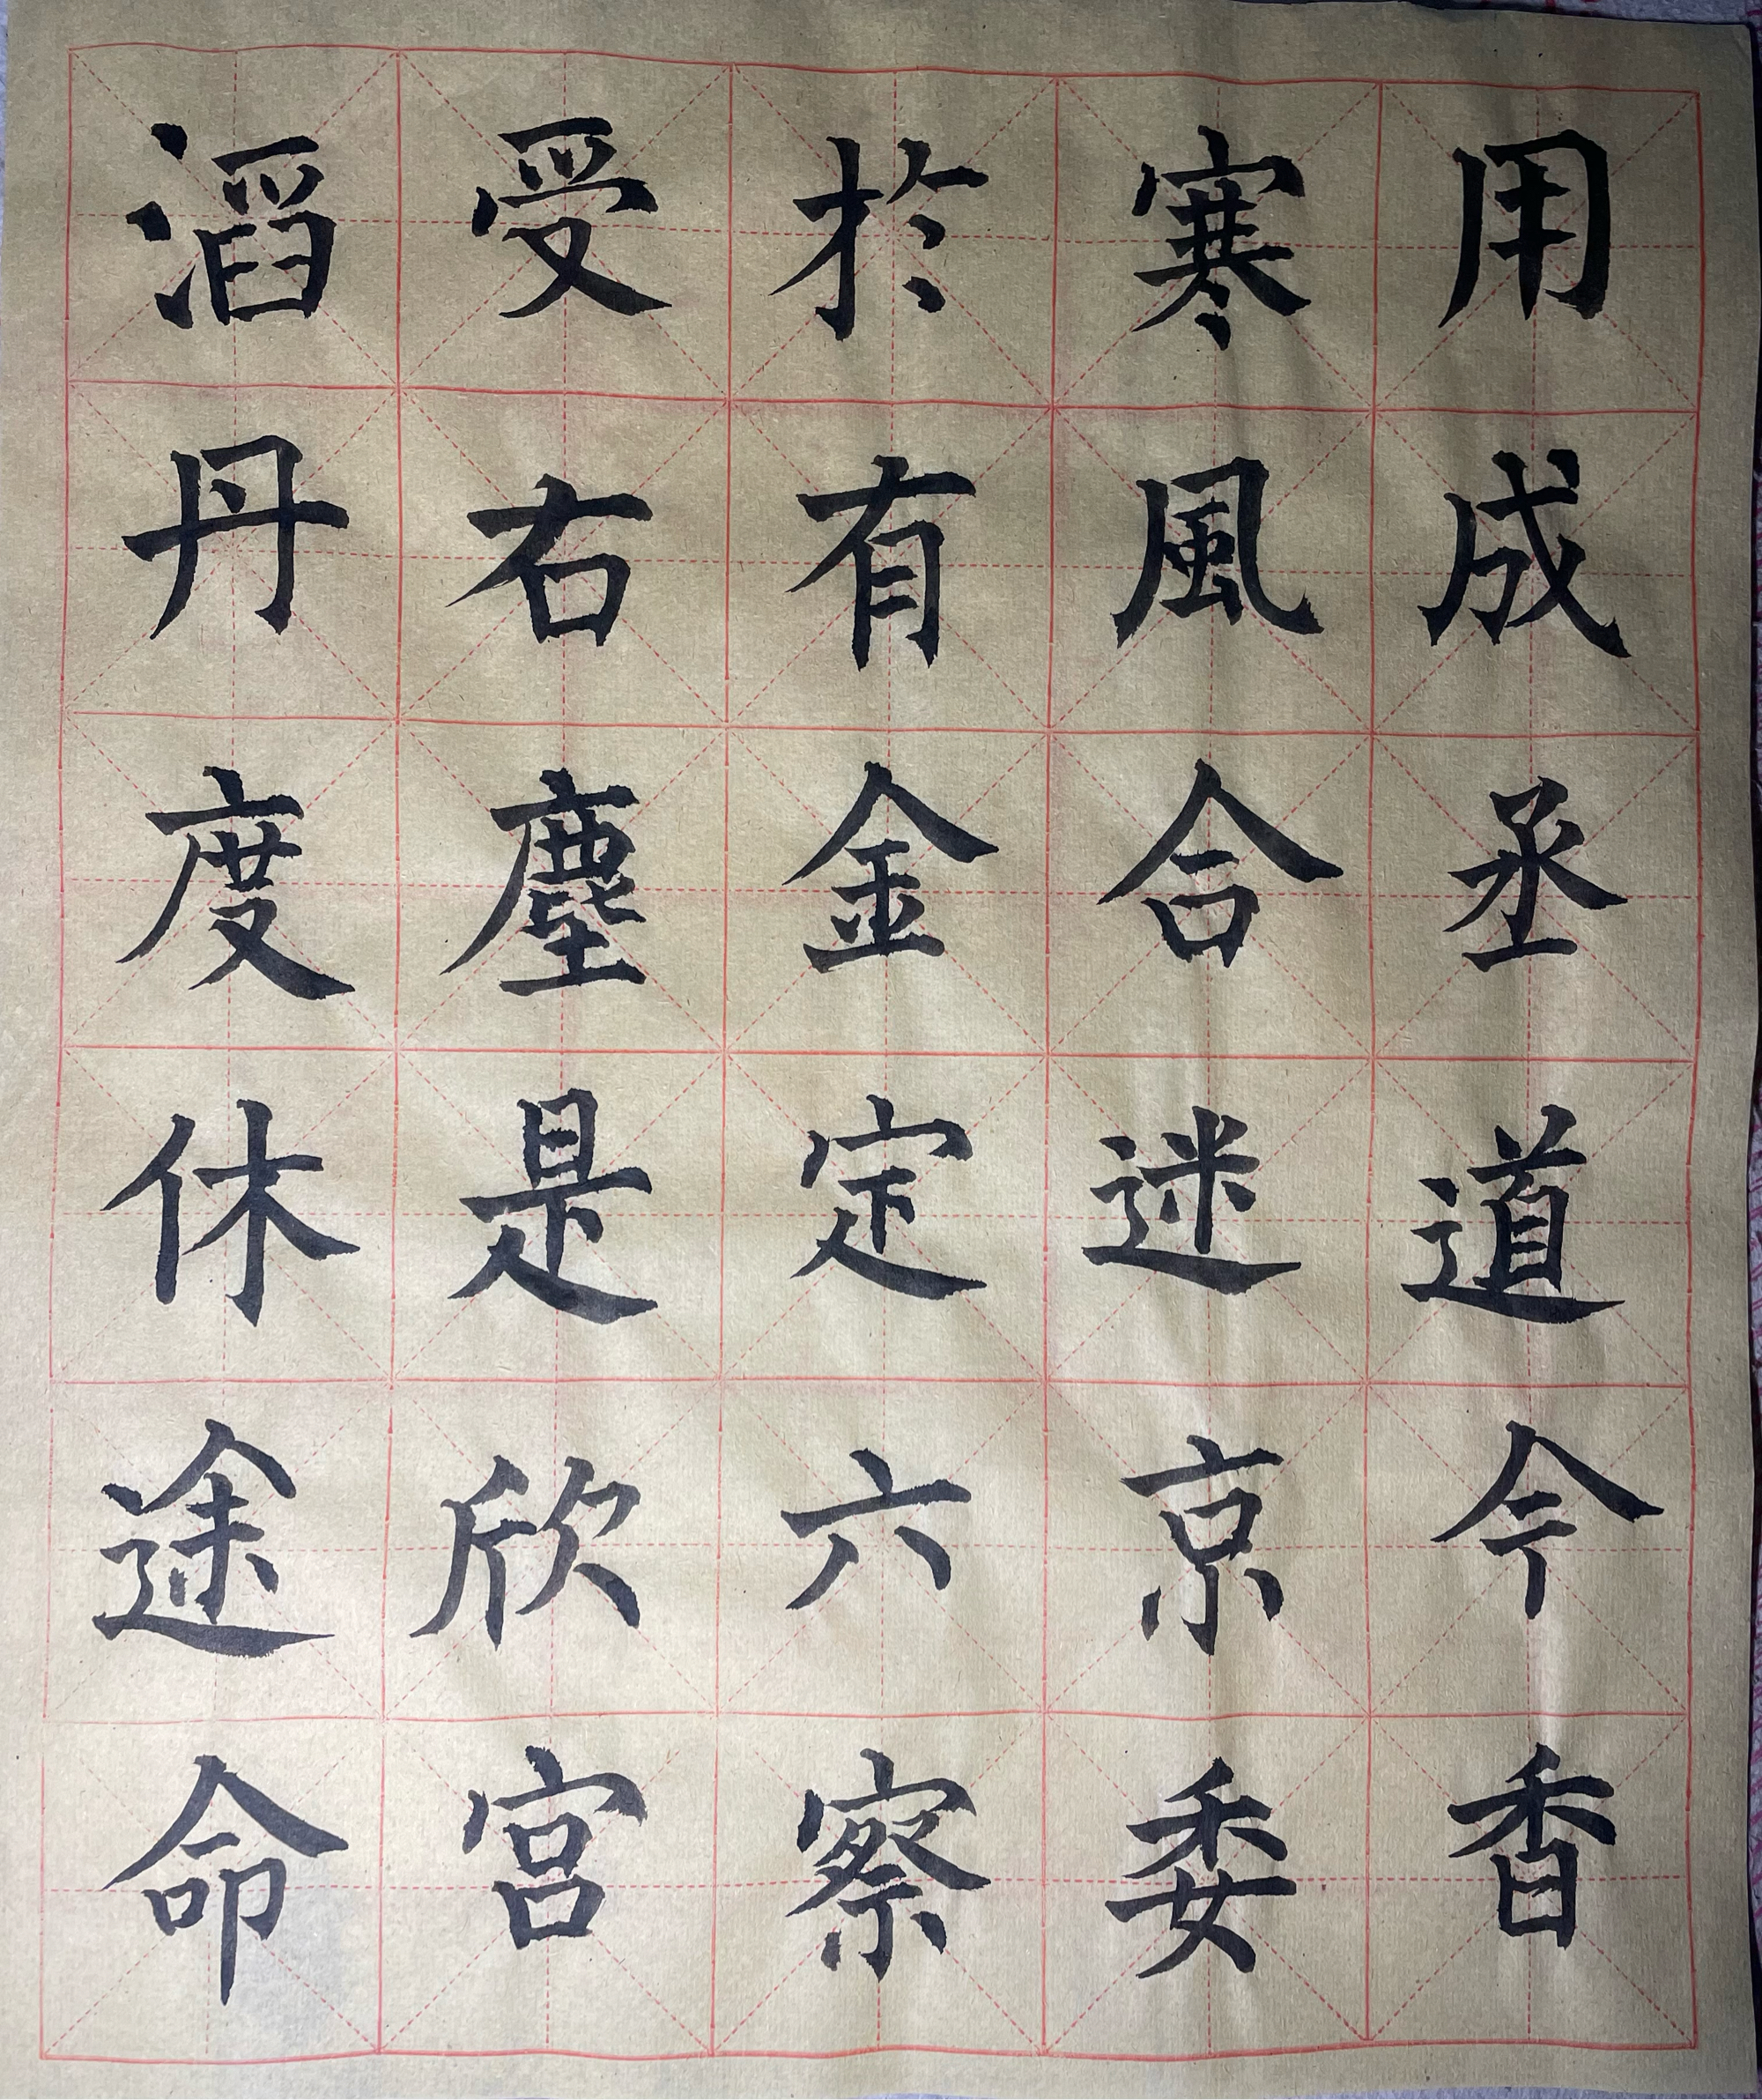 用成丞道今香
寒風合迷京委
於有金定六察
受右塵是欣宮
滔丹度休途命